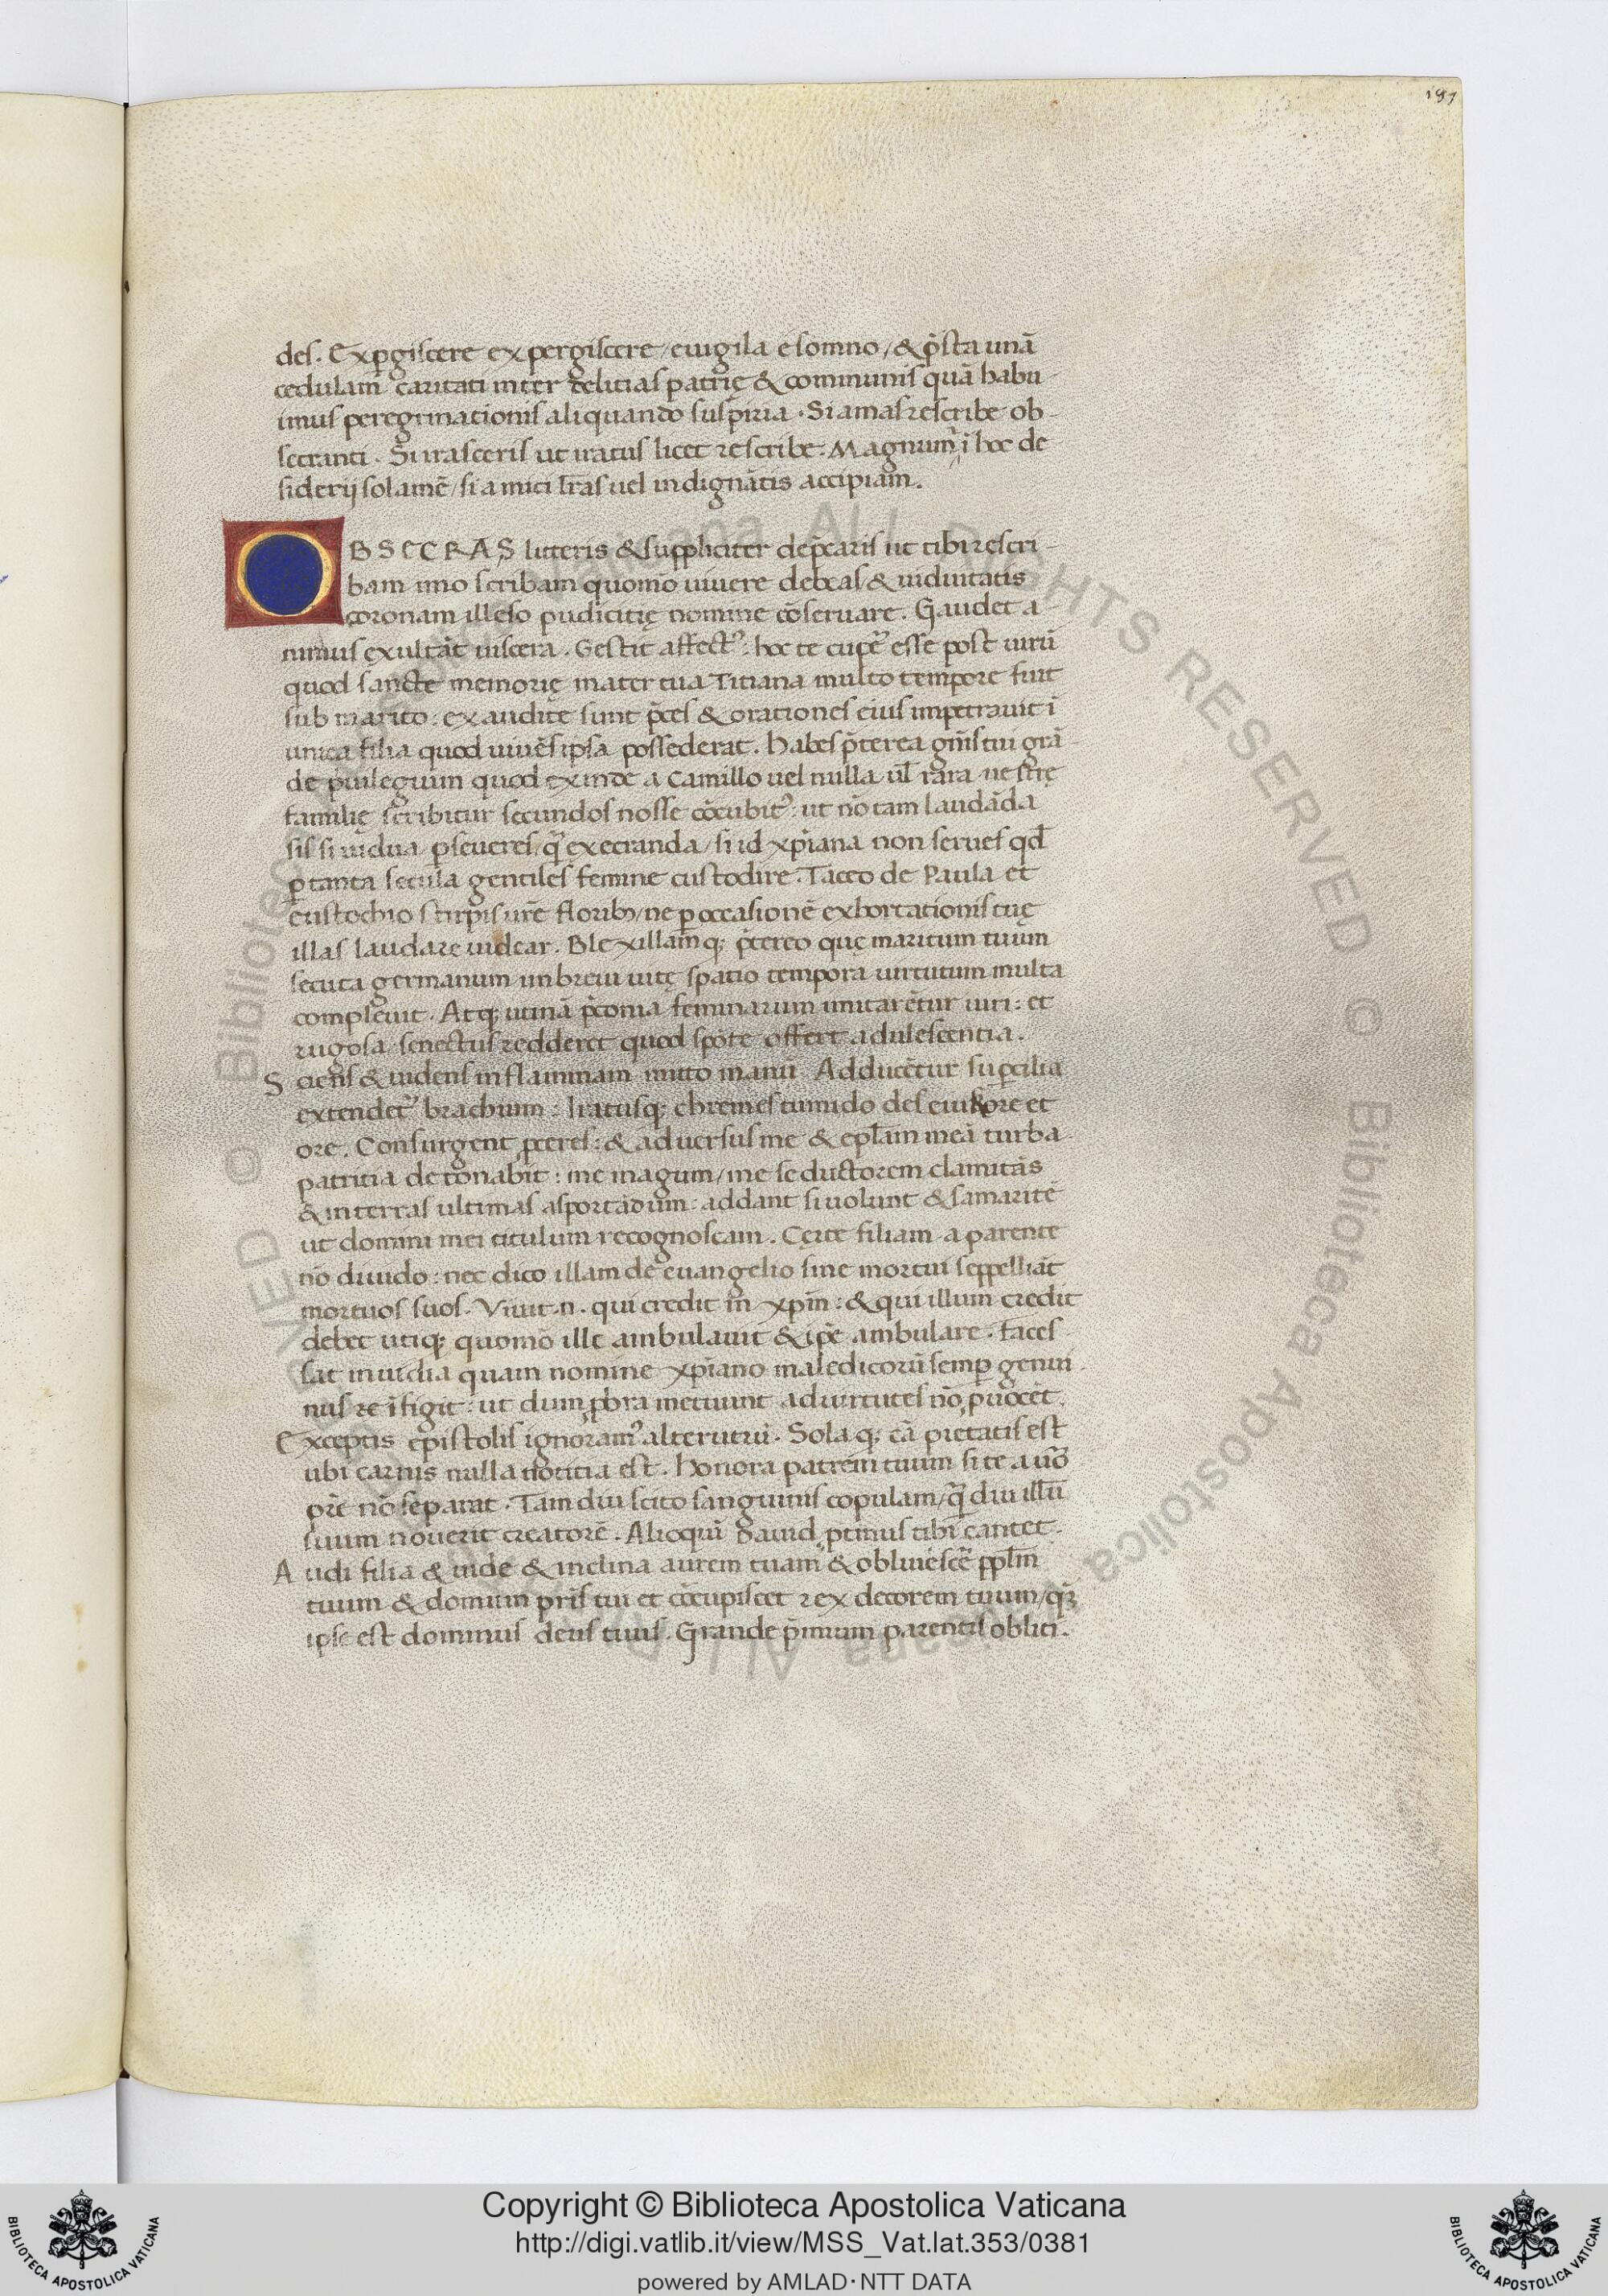 191
des. Expgiscere expergiscere / euigila e somno / & p̄sta unā
cedulam caritati inter delitias patrię & communis quā habu-
imus peregrinationis aliquando suspiria. Si amas rescribe ob-
secranti. Si irasceris ut iratus licet rescribe. Magnum ī hoc de
siderij solamē / si amici lr̄as uel indignātis accipiam.
OBSECRAS litteris & suppliciter dep̄caris ut tibi rescri-
bam imo scribam quomō uiuere debeas & uiduitatis
coronam illeso pudicitię nomine cōseruare. Gaudet a-
nimus exultāt uiscera. Gestit affect᾿: hoc te cup̄e esse post uirū
quod sancte memorię mater tua Titiana multo tempore fuit
sub marito: exaudite sunt p̄ces & orationes eius impetrauit ī
unica filia quod uiuēs ipsa possederat. Habes p̄terea gn̄is tui grā-
de puilegium quod exinde a Camillo uel nulla ul̄ rara uestrę
familię scribitur secundos nosse cōcubit᾿: ut nō tam laudāda
sis si uidua pseueres / q̄ execranda / si id xp̄iana non serues qd̄
p tanta secula gentiles femine custodire. Taceo de Paula et
eustochio stirpis ur̄e florib; / ne p occasionē exhortationis tuę
illas laudare uidear. Blexillamq; p̄tereo quę maritum tuum
secuta germanum in breui uitę spatio tempora uirtutum multa
compleuit. Atq; utinā p̄conia feminarum imitarētur uiri: et
rugosa senectus redderet quod spōte offert adulescentia.
Sciens & uidens in flammam mitto manū. Adducētur supcilia
extendet᾿ brachium: Iratusq; chremes tumido deseuit ore et
ore. Consurgent pceres: & aduersus me & epl̄am meā turba
patritia detonabit: me magum / me seductorem clamitās
& in terras ultimas asportādum: addant si uolunt & samaritē
ut domini mei titulum recognoscam. Cęrte filiam a parente
nō diuido: nec dico illam de euangelio sine mortui seppelliāt
mortuos suos. Viuit .n. qui credit in xp̄m: & qui illum credit
debet utiq; quomō ille ambulauit & ip̄e ambulare. faces-
sat inuidia quam nomine xp̄iano maledicorū semp genui-
nus re īfigit: ut dum pbra metuunt ad uirtutes nō puocēt.
Exceptis epistolis ignoram᾿ alterutrū. Sola q; cā pietatis est
ubi carnis nulla notitia est. Honora patrem tuum si te a uō
pr̄e nō separat. Tam diu scito sanguinis copulam / q̄ diu illū
suum nouerit creatorē. Alioquī Dauid ptinus tibi cantet.
Audi filia & uide & inclina aurem tuam & obliuisc̄e ppl̄m
tuum & domum pr̄is tui et cōcupiscet rex decorem tuum / q̄
ipse est dominus deus tuus. Grande p̄mium parentis obliti.
© Biblioteca Apostolica Vaticana ALL RIGHTS RESERVED © Biblioteca Apostolica Vaticana ALL RIGHTS RESERVED
Copyright © Biblioteca Apostolica Vaticana
http://digi.vatlib.it/view/MSS_Vat.lat.353/0381
powered by AMLAD·NTT DATA
BIBLIOTECA APOSTOLICA VATICANA
BIBLIOTECA APOSTOLICA VATICANA